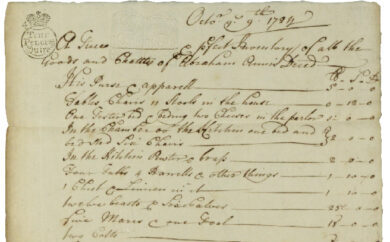 Octo. ye 9th 1724
A True & perfect Inventory of all the
Goods and Chattels of Abraham Deced
His Purse & apparell 5-0-0
Tables Chairs & Stools in the house 0-10-0
One & two in the parlor
In the Chamber or the Kitchin one bed and
bedsted Six Chairs 2-0-0
In the Kitchin Pewter & brass 2-0-0
Four Tubbs 4 Barrells & other things 1-0-0
1 Chest & Linnen in it 1-0-0
twelve beasts & Six Calves
five Mares & one Foal
two Colts